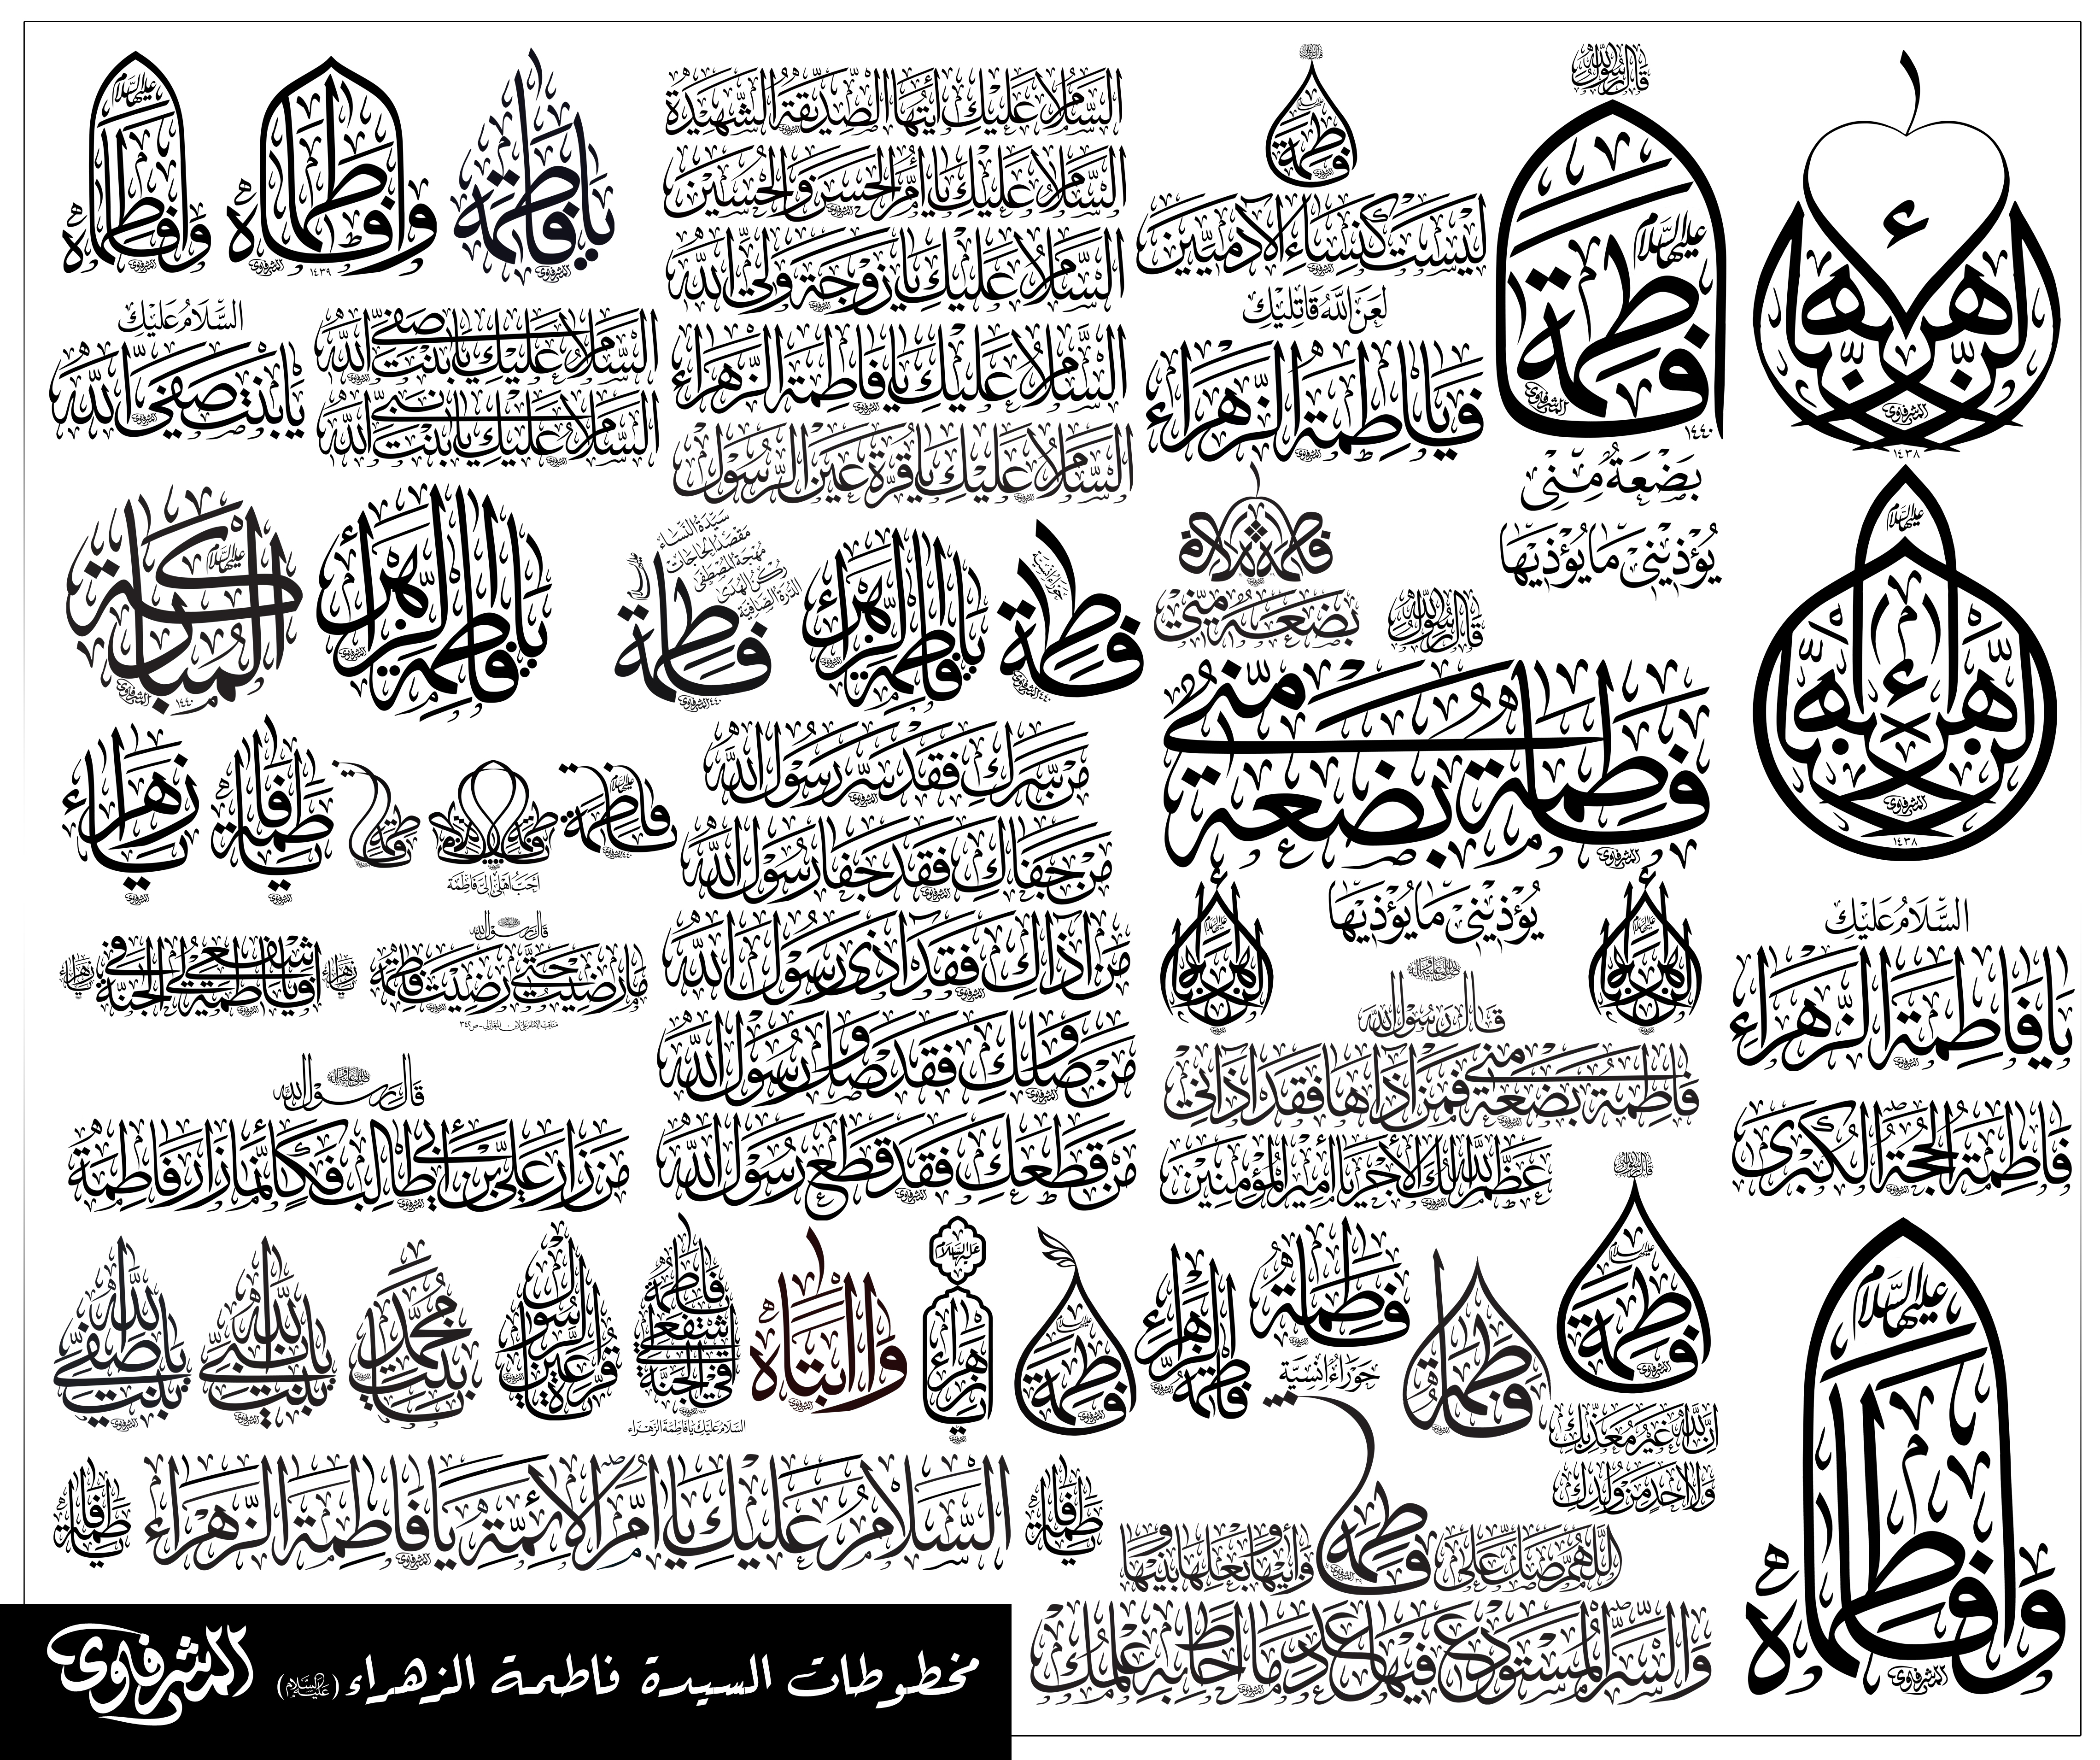 قال رسول الله
عليها السلام
وافاطماه
وافاطماه
١٤٣٩
يا فاطمة
السلام عليك أيتها الصديقة الشهيدة
السلام عليك يا أم الحسن والحسين
السلام عليك يا زوجة ولي الله
السلام عليك يا فاطمة الزهراء
السلام عليك يا قرة عين الرسول
السلام عليك
يا بنت صفي الله
السلام عليك يا بنت صفي الله
السلام عليك يا بنت نبي الله
فاطمة
ليست كنساء الآدميين
لعن الله قاتليك
فيا فاطمة الزهراء
قال رسول الله
عليها السلام
فاطمة
١٤٤٠
بَضْعَةٌ مِنّي
يُؤذيني مَا يُؤذيهَا
الزهراء
١٤٣٨
عليها السلام
الزهراء
١٤٣٨
المباركة
عليها السلام
١٤٤٠
يا فاطمة الزهراء
سيدة النساء
مقصد الحاجات
مهجة المصطفى
ركن الهدى
الدرة الصافية
فاطمة
١٤٤٠
يا فاطمة الزهراء
فاطمة
١٤٤٠
بضعة مني
قال رسول الله
فاطمة بضعة مني
يُؤذيني مَا يُؤذيهَا
يا زهراء
يا فاطمة
فاطمة
فاطمة
أحب أهلي إلي فاطمة
من سرك فقد سر رسول الله
من جفاك فقد جفا رسول الله
من آذاك فقد آذى رسول الله
من وصلك فقد وصل رسول الله
من قطعك فقد قطع رسول الله
زهراء
يا فاطمة اشفعي لي في الجنة
زهراء
قال رسول الله
ما رضيت حتى رضيت فاطمة
قال رسول الله
من زار علي بن أبي طالب فكأنما زار فاطمة
الزهراء
الزهراء
قال رسول الله
فاطمة بضعة مني فمن آذاها فقد آذاني
عظم الله لك الأجر يا أمير المؤمنين
السلام عليك
يا فاطمة الزهراء
فاطمة الحجة الكبرى
يا بنت صفي الله
يا بنت نبي الله
يا بنت محمد
قرة عين الرسول
فاطمة اشفعي لي في الجنة
السلام عليك يا فاطمة الزهراء
وا ابتاه
عليها السلام
يا زهراء
فاطمة
فاطمة الزهراء
فاطمة
حوراء إنسية
فاطمة
قال رسول الله
عليها السلام
فاطمة
إن الله غير معذبك
ولا أحد من ولدك
يا فاطمة
السلام عليك يا أم الأئمة يا فاطمة الزهراء
يا فاطمة
اللهم صل على فاطمة وأبيها وبعلها وبنيها
والسر المستودع فيها عدد ما أحاط به علمك
عليها السلام
وافاطماه
المشرفاوي
مخطوطات السيدة فاطمة الزهراء (عليها السلام)
المشرفاوي